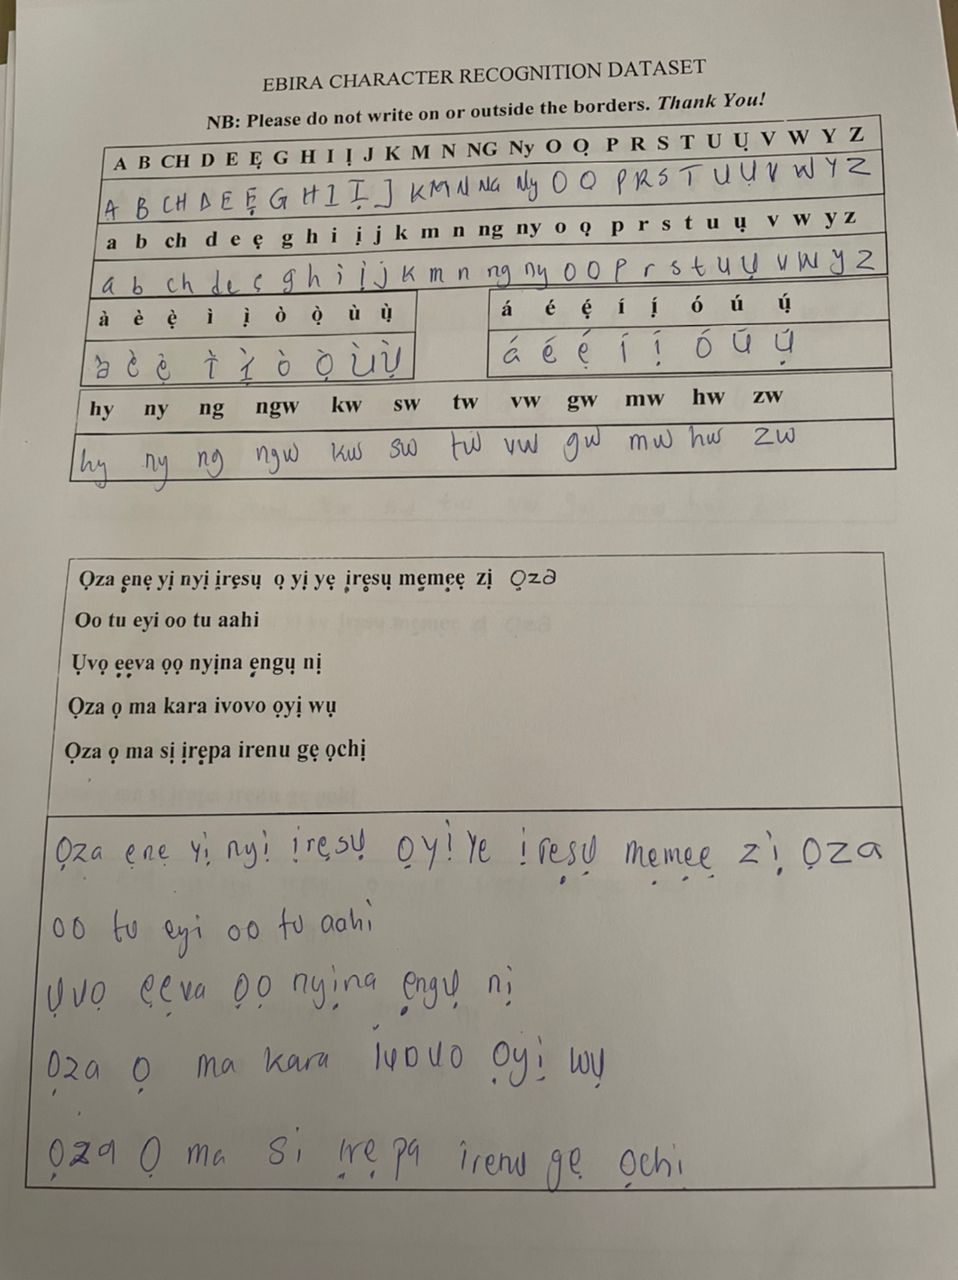 EBIRA CHARACTER RECOGNITION DATASET
NB: Please do not write on or outside the borders. Thank You!
A B CH D E Ẹ G H I Ị J K M N NG Ny O Ọ P R S T U Ụ V W Y Z
A B CH D E Ẹ G H I Ị J K M N NG Ny O O P R S T U Ụ V W Y Z
a b ch d e ẹ g h i ị j k m n ng ny o ọ p r s t u ụ v w y z
a b ch d e ẹ g h i ị j k m n ng ny o o p r s t u ụ v w y z
à è ẹ̀ ì ị̀ ò ọ̀ ù ụ̀ á é ẹ́ í ị́ ó ú ụ́
à è ẹ̀ ì ị̀ ò ọ̀ ù ụ̀ á é ẹ́ í ị́ ó ú ụ́
hy ny ng ngw kw sw tw vw gw mw hw zw
hy ny ng ngw kw sw tw vw gw mw hw zw
Ọza ẹnẹ yị nyị ịrẹsụ ọ yị yẹ ịrẹsụ mẹmẹẹ zị ọza
Oo tu eyi oo tu aahi
Ụvọ ẹẹva ọọ nyịna ẹngụ nị
Ọza ọ ma kara ivovo ọyị wụ
Ọza ọ ma sị ịrẹpa irenu gẹ ọchị
Ọza ẹnẹ yị nyị ịrẹsụ ọ yị ye ịresụ mẹmẹẹ zị ọza
oo tu eyi oo tu aahi
ụvọ ẹẹva ọọ nyịna ẹngụ nị
ọza ọ ma kara ivovo ọyị wụ
ọza ọ ma si ịrẹ pa irenu gẹ ọchị